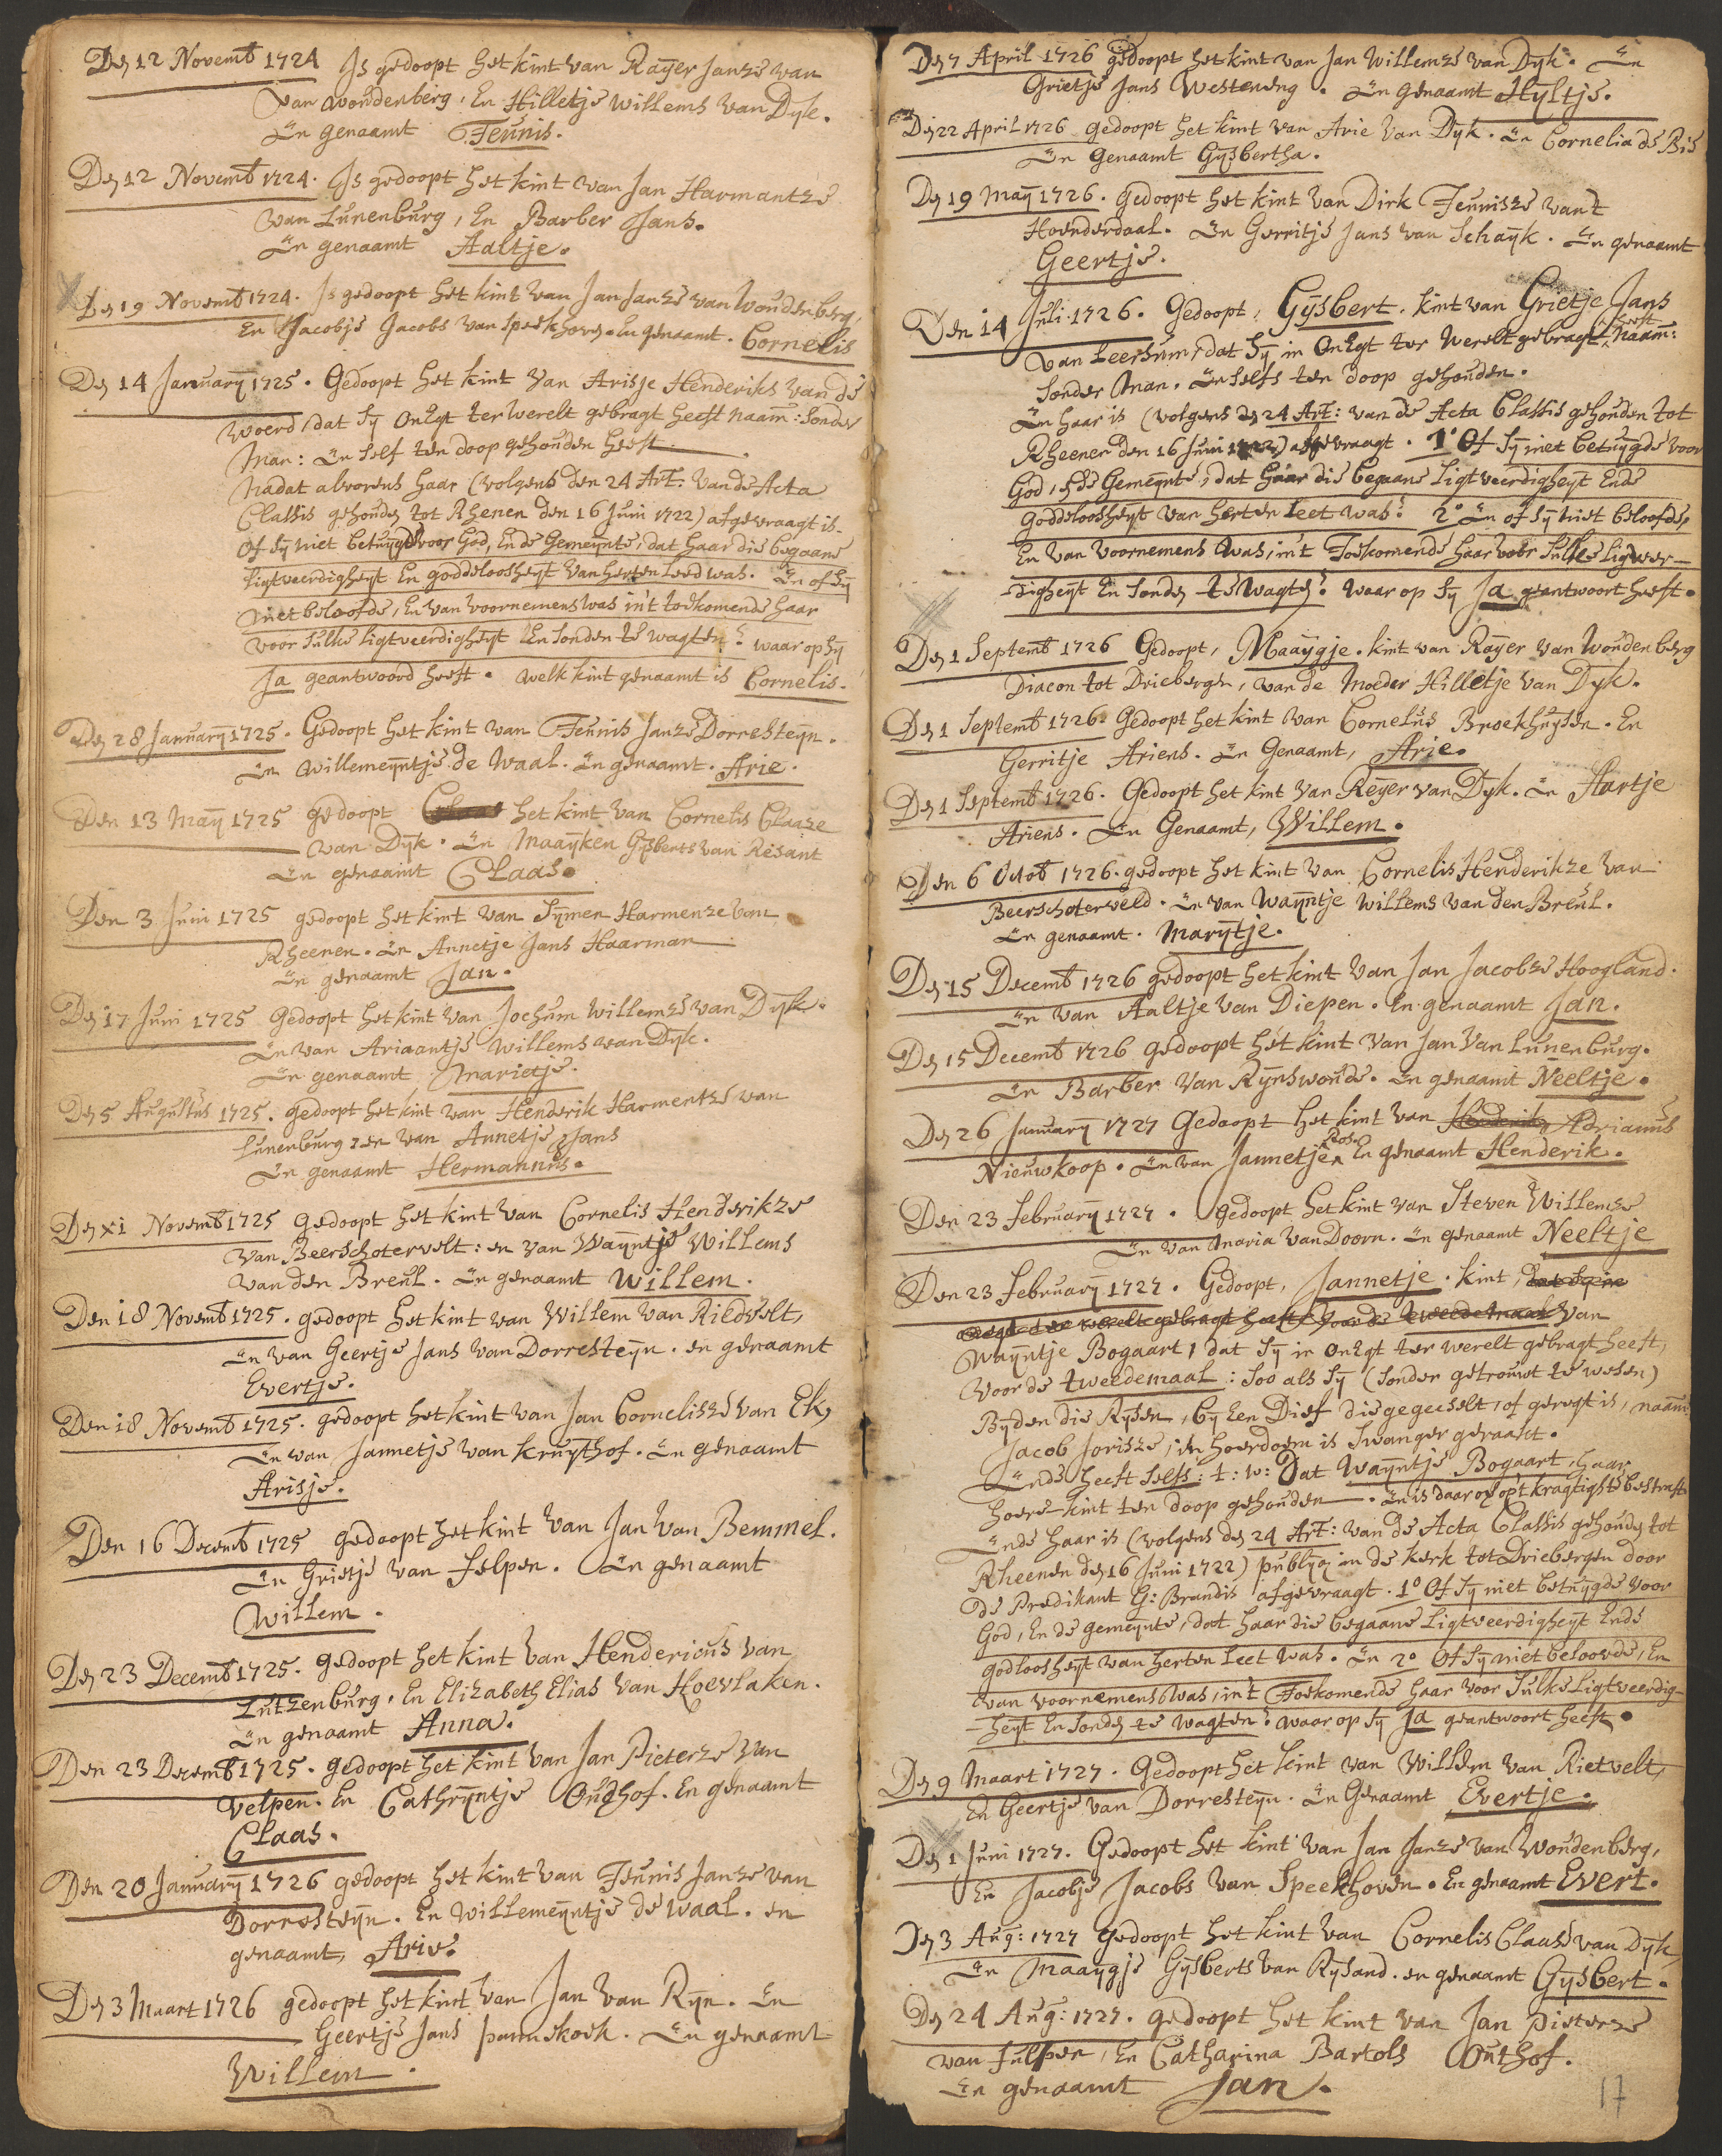 Den 12 Novemb 1724 Is gedoopt het kint van Raÿer Janze van
Van woudenberg, En Hilletje Willems van Dyk.
En genaamt Teunis.
Den 12 Novemb 1724. Is gedoopt het kint van Jan Harmantze
Van Lunenburg, En Barber Jans.
En genaamt Aaltje.
Den 19 Novemb 1724. Is gedoopt het kint van Jan Janze van Woudenberg,
En Jacobje Jacobs van speekhoven. En genaamt. Cornelis
Den 14 Januarÿ 1725. Gedoopt het kint Van Arisje Henderiks van de
Woerd, dat Sÿ OnEgt ter Werelt gebragt heeft naam: Sonder
Man: En self ten doop gehouden heeft.
Nadat alvorens haar (volgens den 24 Art: van de Acta
Classis gehouden tot Rhenen den 16 Juni 1722) afgevraagt is.
Of Sÿ niet betuÿgde voor God, En de Gemeÿnte, dat haar die begaane
ligtveerdigheÿt En goddeloosheÿt van herten Leed was. En of Sÿ
niet beloofde, En van voornemens was in't toekomende haar
voor sulke ligtveerdigheÿt En sonden te wagten? waar op sÿ
Ja geantwoord heeft. welk kint genaamt is Cornelis.
Den 28 Januarÿ 1725. Gedoopt het kint van Teunis Janze Dorresteÿn.
En Willemeÿntje de Waal. En genaamt. Arie.
Den 13 Maÿ 1725 gedoopt Claas het kint van Cornelis Claaze
van Dÿk. En Maaÿken Gÿsberts van Resant
En genaamt Claas.
Den 3 Juni 1725 gedoopt het kint van Sÿmen Harmenze van
Rheenen. En Annetje Jans Haarman
En genaamt Jan.
Den 17 Juni 1725 Gedoopt het kint van Jochum Willemze van Dÿk.
En van Ariaantje Willems van Dÿk.
En genaamt Marietje.
Den 5 Augustus 1725. gedoopt het kint van Henderik Harmentze van
Lunenburg, en van Annetje Jans
En genaamt Hermannus.
Den xi Novemb 1725 Gedoopt het kint van Cornelis Henderikze
Van Beerschotervelt: en van Waÿntje Willems
van den Breul. En genaamt Willem.
Den 18 Novemb 1725. gedoopt het kint van Willem van Riedvelt,
En van Geertje Jans van Dorresteÿn. en genaamt
Evertje.
Den 18 Novemb 1725. gedoopt het kint van Jan Cornelisze van Ek,
En van Jannetje van Kruÿthof. En genaamt
Arisje.
Den 16 Decemb 1725 gedoopt het kint van Jan van Bemmel.
En Grietje van Felpen. En genaamt
Willem.
Den 23 Decemb 1725. gedoopt het kint van Hendericus van
Lutzenburg. En Elizabeth Elias van Hoevlaken.
En genaamt Anna.
Den 23 Decemb 1725. gedoopt het kint van Jan Pieterze van
Velpen. En Cathrÿntje Oudhof. En genaamt
Claas.
Den 20 Januarÿ 1726 gedoopt het kint van Teunis Janze van
Dorresteÿn. En Willemeÿntje de Waal. en
genaamt, Arie.
Den 3 Maart 1726 gedoopt het kint van Jan van Rÿn. En
Geertje Jans pannekoek. En genaamt
Willem.
Den 7 April 1726 gedoopt het kint van Jan Willemze van Dÿk. En
Grietje Jans Westeneng. En genaamt Hÿltje.
Den 22 April 1726 gedoopt het kint van Arie Van Dÿk. En Cornelia de Bis
En genaamt Gÿsbertha.
Den 19 Maÿ 1726. gedoopt het kint van Dirk Teunisze van't
Hoenderdaal. En Gerritje Jans van Schaÿk. En genaamt
Geertje.
Den 14 Juli 1726. Gedoopt, Gÿsbert. kint van Grietje Jans
van Leersum, dat Sÿ in OnEgt ter Werelt gebragt heeft, naam:
Sonder Man. En selfs ten doop gehouden.
En haar is (volgens den 24 Art: van de Acta Classis gehouden tot
Rheenen den 16 Juni 1722) afgevraagt. 1° Of Sÿ niet betuÿgde voor
God, En de Gemeÿnte, dat haar die begaane Ligtveerdigheÿt Ende
Goddeloosheÿt van herten Leet was? 2° En of sÿ niet beloofde,
En van voornemens was, in't Toekomende haar voor sulke ligtver-
digheÿt En sonden te Wagten? Waar op Sÿ Ja geantwoort heeft.
Den 1 Septemb 1726 Gedoopt, Maaÿgje. kint van Raÿer van Woudenberg
Diacon tot Driebergen, van de Moeder Hilletje van Dÿk.
Den 1 Septemb 1726. Gedoopt het kint van Cornelus Broekhuÿsen. En
Gerritje Ariens. En Genaamt, Arie.
Den 1 Septemb 1726. Gedoopt het kint van Reÿer van Dÿk. En Aartje
Ariens. En Genaamt, Willem.
Den 6 Octob 1726. gedoopt het kint van Cornelis Henderikze van
Beerschoterveld. En van Waÿntje Willems van den Breul.
En genaamt. Marÿtje.
Den 15 Decemb 1726 gedoopt het kint van Jan Jacobze Hoogland.
En van Aaltje van Diepen. En genaamt Jan.
Den 15 Decemb 1726 gedoopt het kint van Jan van Lunenburg.
En Barber Van Rÿnswoude. En genaamt Neeltje.
Den 26 Januarÿ 1727 Gedoopt het kint van Henderik Adrianus
Nieuwkoop. En van Jannetje Bos. En genaamt Henderik.
Den 23 Februarÿ 1727. Gedoopt het kint van Steven Willemze
En van Maria van Doorn. En genaamt Neeltje
Den 23 Februarÿ 1727. Gedoopt, Jannetje. kint, dat Sÿ in
onegt ter werelt gebragt heeft voor de tweedemaal van
Waÿntje Bogaart, dat Sÿ in OnEgt ter werelt gebragt heeft,
voor de tweedemaal: Soo als Sÿ (sonder getrouwt te wesen)
Bÿ den die Rÿsen, bÿ een Dief die gegeeselt, of geregt is, naam:
Jacob Jorisze, in hoerdoem is swanger geraakt.
Ende heeft selfs: t: w: Dat Waÿntje Bogaart, haar
hoere-kint ten doop gehouden. En is daar op op't kragtigste bestraft
Ende haar is (volgens den 24 Art: van de Acta Classis gehouden tot
Rheenen den 16 Juni 1722) publÿq in de kerk tot Driebergen door
de Predikant G: Brandis afgevraagt. 1° Of Sÿ niet betuÿgde voor
God, En de gemeÿnte, dat haar die begaane Ligtveerdigheÿt Ende
godloosheÿt van herten Leet was. En 2° Of Sÿ niet beloovde, En
van voornemens was, in't Toekomende haar voor sulke Ligtveerdig-
heÿt En sonden te wagten? waar op sÿ Ja geantwoort heeft.
Den 9 Maart 1727. Gedoopt het kint van Willem van Rietvelt,
En Geertje van Dorresteÿn. En Genaamt Evertje.
Den 1 Juni 1727. Gedoopt het kint van Jan Janze van Woudenberg,
En Jacobje Jacobs van Speekhoven. En genaamt Evert.
Den 3 Aug: 1727 Gedoopt het kint van Cornelis Claase van Dÿk,
En Maaÿgje Gÿsberts van Rÿsand. en genaamt Gÿsbert.
Den 24 Aug: 1727. gedoopt het kint van Jan Pieterze
van Fulpen, En Catharina Bartols Outhof.
En genaamt Jan.
17